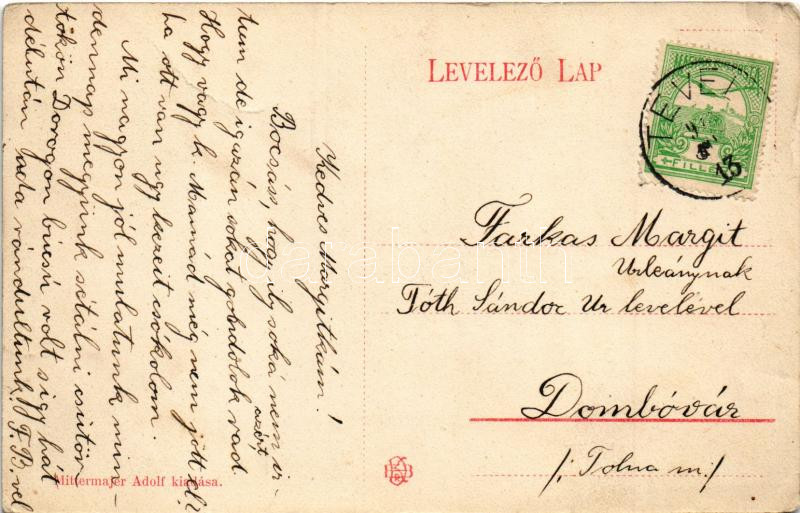 LEVELEZŐ LAP
TEVEL
13
FILLÉR
Farkas Margit
Urleánynak
Tóth Sándor Ur levelével
Dombóvár
/: Tolna m :/
Kedves Margitkám!
Bocsáss, hogy ily soká nem ir-
tam de igazán sokat gondolok rád
azért,
Hogy vagy k. Mamád még nem jött el?
ha ott van ugy kezeit csókolom.
Mi nagyon jól mulatunk min-
dennap megyünk sétálni csütör-
tökön Dorogon búcsú volt s igy hát
délután oda rándultunk. F. B. vel
Mittermajer Adolf kiadása.
darabanth